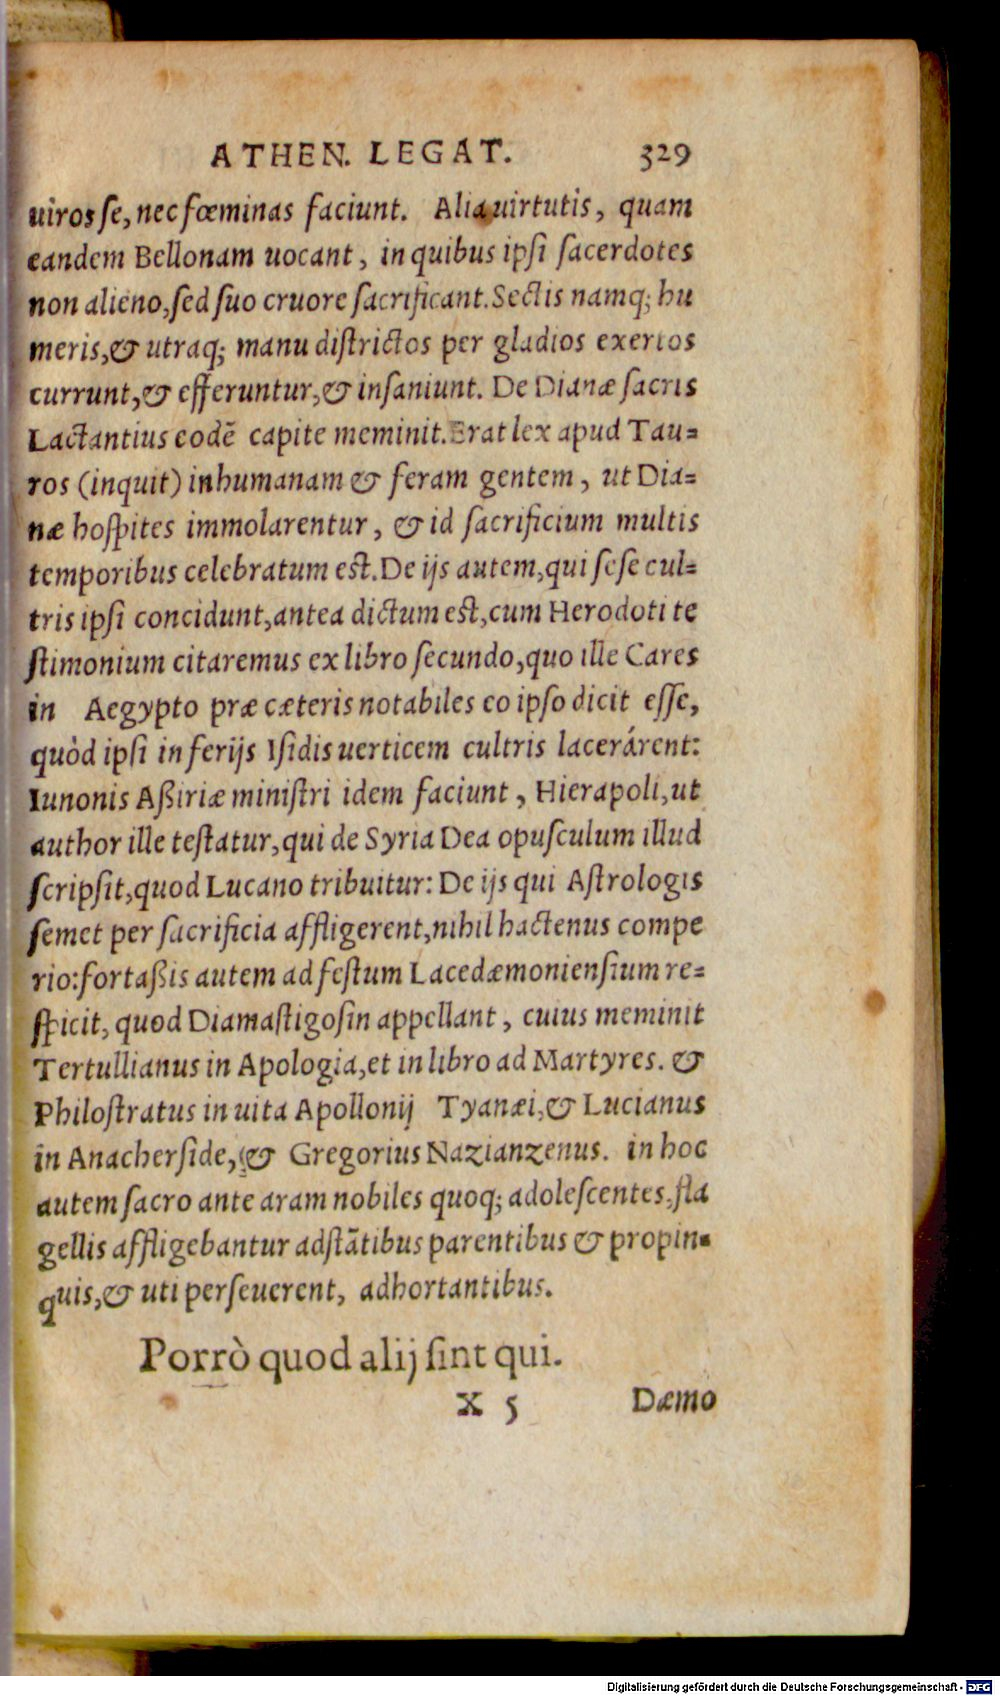 ATHEN. LEGAT. 329
uiros se, nec fœminas faciunt. Alia uirtutis, quam
eandem Bellonam uocant, in quibus ipsi sacerdotes
non alieno, sed suo cruore sacrificant. Sectis namq; hu
meris, & utraq; manu districtos per gladios exertos
currunt, & efferuntur, & insaniunt. De Dianæ sacris
Lactantius eodē capite meminit. Erat lex apud Tau=
ros (inquit) inhumanam & feram gentem, ut Dia=
næ hospites immolarentur, & id sacrificium multis
temporibus celebratum est. De ijs autem, qui sese cul=
tris ipsi concidunt, antea dictum est, cum Herodoti te
stimonium citaremus ex libro secundo, quo ille Cares
in Aegypto præ cæteris notabiles eo ipso dicit esse,
quòd ipsi in ferijs Isidis uerticem cultris lacerárent:
Iunonis Aßiriæ ministri idem faciunt, Hierapoli, ut
author ille testatur, qui de Syria Dea opusculum illud
scripsit, quod Lucano tribuitur: De ijs qui Astrologis
semet per sacrificia affligerent, nihil hactenus compe
rio: fortaßis autem ad festum Lacedæmoniensium re=
spicit, quod Diamastigosin appellant, cuius meminit
Tertullianus in Apologia, et in libro ad Martyres. &
Philostratus in uita Apollonij Tyanæi, & Lucianus
in Anacherside, & Gregorius Nazianzenus. in hoc
autem sacro ante aram nobiles quoq; adolescentes, fla
gellis affligebantur adstātibus parentibus & propin=
quis, & uti perseuerent, adhortantibus.
Porrò quod alij sint qui.
X 5 Dæmo
Digitalisierung gefördert durch die Deutsche Forschungsgemeinschaft - DFG